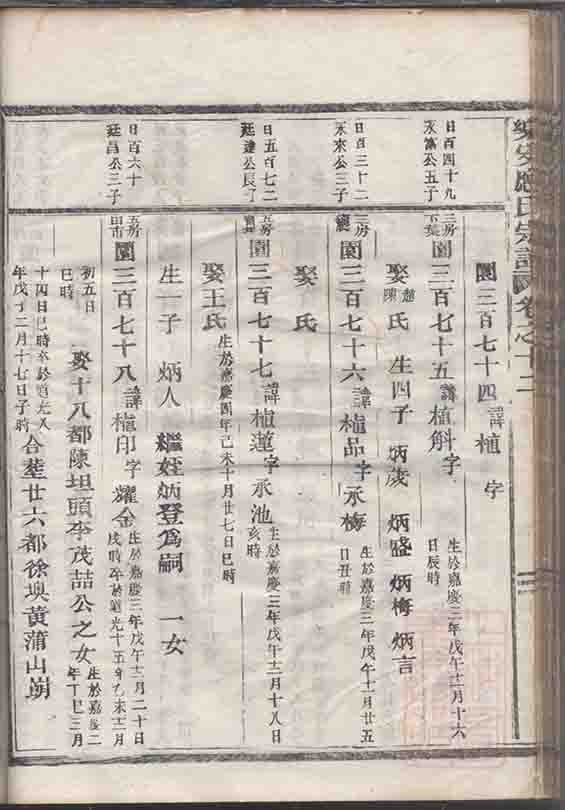 樂安應氏宗譜圖卷之十二
園三百七十四諱植 字
日百四十九
永富公五子
三房
園三百七十五諱植斛字
生於嘉慶三年戊午十二月十六
日辰時
娶趙陳氏 生四子 炳歲 炳盛 炳梅 炳言
日百三十二
永來公三子
三房
園三百七十六諱植品字承梅
生於嘉慶三年戊午十一月廿五
日丑時
娶 氏
日五百七二
廷達公長子
五房
園三百七十七諱植蓮字承池
生於嘉慶三年戊午十二月十八日
亥時
娶王氏
生於嘉慶四年己未十月廿七日巳時
生一子 炳人 繼姪炳登為嗣 一女
日百六十
廷昌公三子
五房
園三百七十八諱植印字耀金
生於嘉慶三年戊午十二月二十日
戌時卒於道光十五年乙未十二月
初五日
巳時
娶十八都陳坦頭李茂喆公之女
生於嘉慶二
年丁巳三月
十四日巳時卒於道光八
年戊子二月十七日子時
合塟廿六都徐塢黃蒲山塝